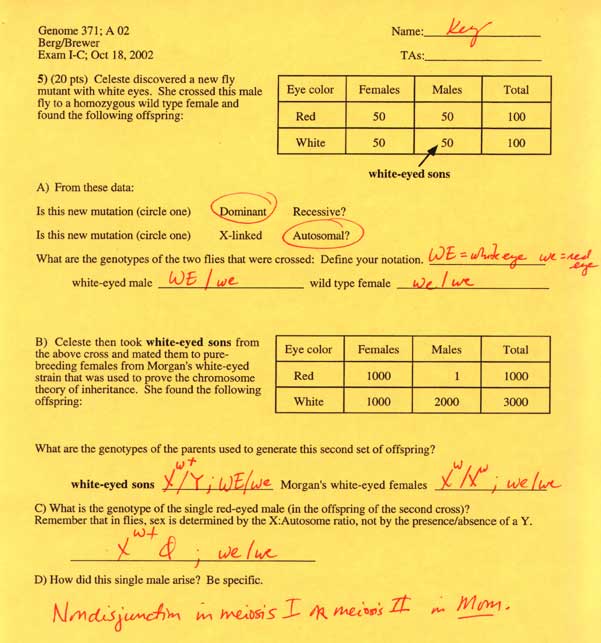 Genome 371; A 02
Name: Key
Berg/Brewer
Exam I-C; Oct 18, 2002
TAs:
5) (20 pts) Celeste discovered a new fly
mutant with white eyes. She crossed this male
fly to a homozygous wild type female and
found the following offspring:
Eye color Females Males Total
Red 50 50 100
White 50 50 100
white-eyed sons
A) From these data:
Is this new mutation (circle one) Dominant Recessive?
Is this new mutation (circle one) X-linked Autosomal?
What are the genotypes of the two flies that were crossed: Define your notation. WE = white eye we = red eye
white-eyed male WE / we wild type female we / we
B) Celeste then took white-eyed sons from
the above cross and mated them to pure-
breeding females from Morgan's white-eyed
strain that was used to prove the chromosome
theory of inheritance. She found the following
offspring:
Eye color Females Males Total
Red 1000 1 1000
White 1000 2000 3000
What are the genotypes of the parents used to generate this second set of offspring?
white-eyed sons X^w+/Y ; WE/we Morgan's white-eyed females X^w/X^w ; we/we
C) What is the genotype of the single red-eyed male (in the offspring of the second cross)?
Remember that in flies, sex is determined by the X:Autosome ratio, not by the presence/absence of a Y.
X^w+ Ø ; we/we
D) How did this single male arise? Be specific.
Nondisjunction in meiosis I or meiosis II in Mom.